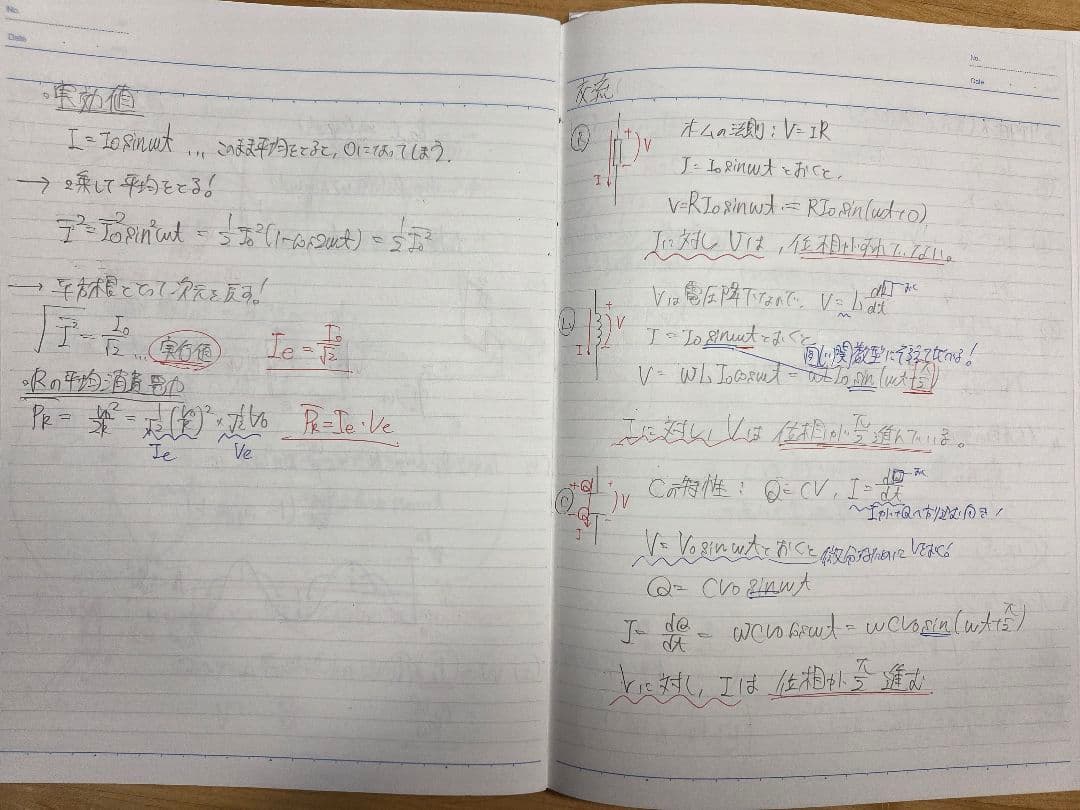 No.
Date
。実効値
I = I₀ sinωt … このまま平均をとると, 0になってしまう.
→ 2乗して平均をとる!
I² = I₀² sin²ωt = 1/2 I₀² (1-cos2ωt) = 1/2 I₀²
→ 平方根をとって次元を戻す!
√I² = I₀/√2 … 実行値
Ie = I₀/√2
。Rの平均消費電力
PR = V₀²/2R = 1/√2 (V₀/R) × 1/√2 V₀
Ie Ve
PR = Ie・Ve
No.
Date
交流
R
+ V
-
I
オームの法則: V=IR
I = I₀ sinωt とおくと,
V = RI₀ sinωt = RI₀ sin(ωt+0)
Iに対しVは, 位相がずれていない。
L
+ V
-
I
Vは電圧降下なので, V = L dI/dt
I = I₀ sinωt とおくと
同じ関数型にそろえて比べる!
V = ωLI₀ cosωt = ωLI₀ sin(ωt+π/2)
Iに対し, Vは位相がπ/2進んでいる。
C
+Q + V
-Q -
I
Cの特性: Q=CV, I = dQ/dt
Iが+Qへ流れ込む向き!
V = V₀ sinωt とおくと
Q = CV₀ sinωt
I = dQ/dt = ωCV₀ cosωt = ωCV₀ sin(ωt+π/2)
Vに対し, Iは位相がπ/2進む